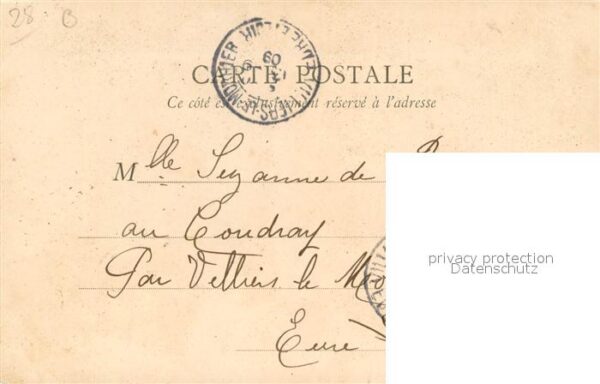 28 B
CARTE POSTALE
Ce côté est exclusivement réservé à l'adresse
Mlle Suzanne de
au Coudray
Par Villiers le Mo
Eure
privacy protection
Datenschutz